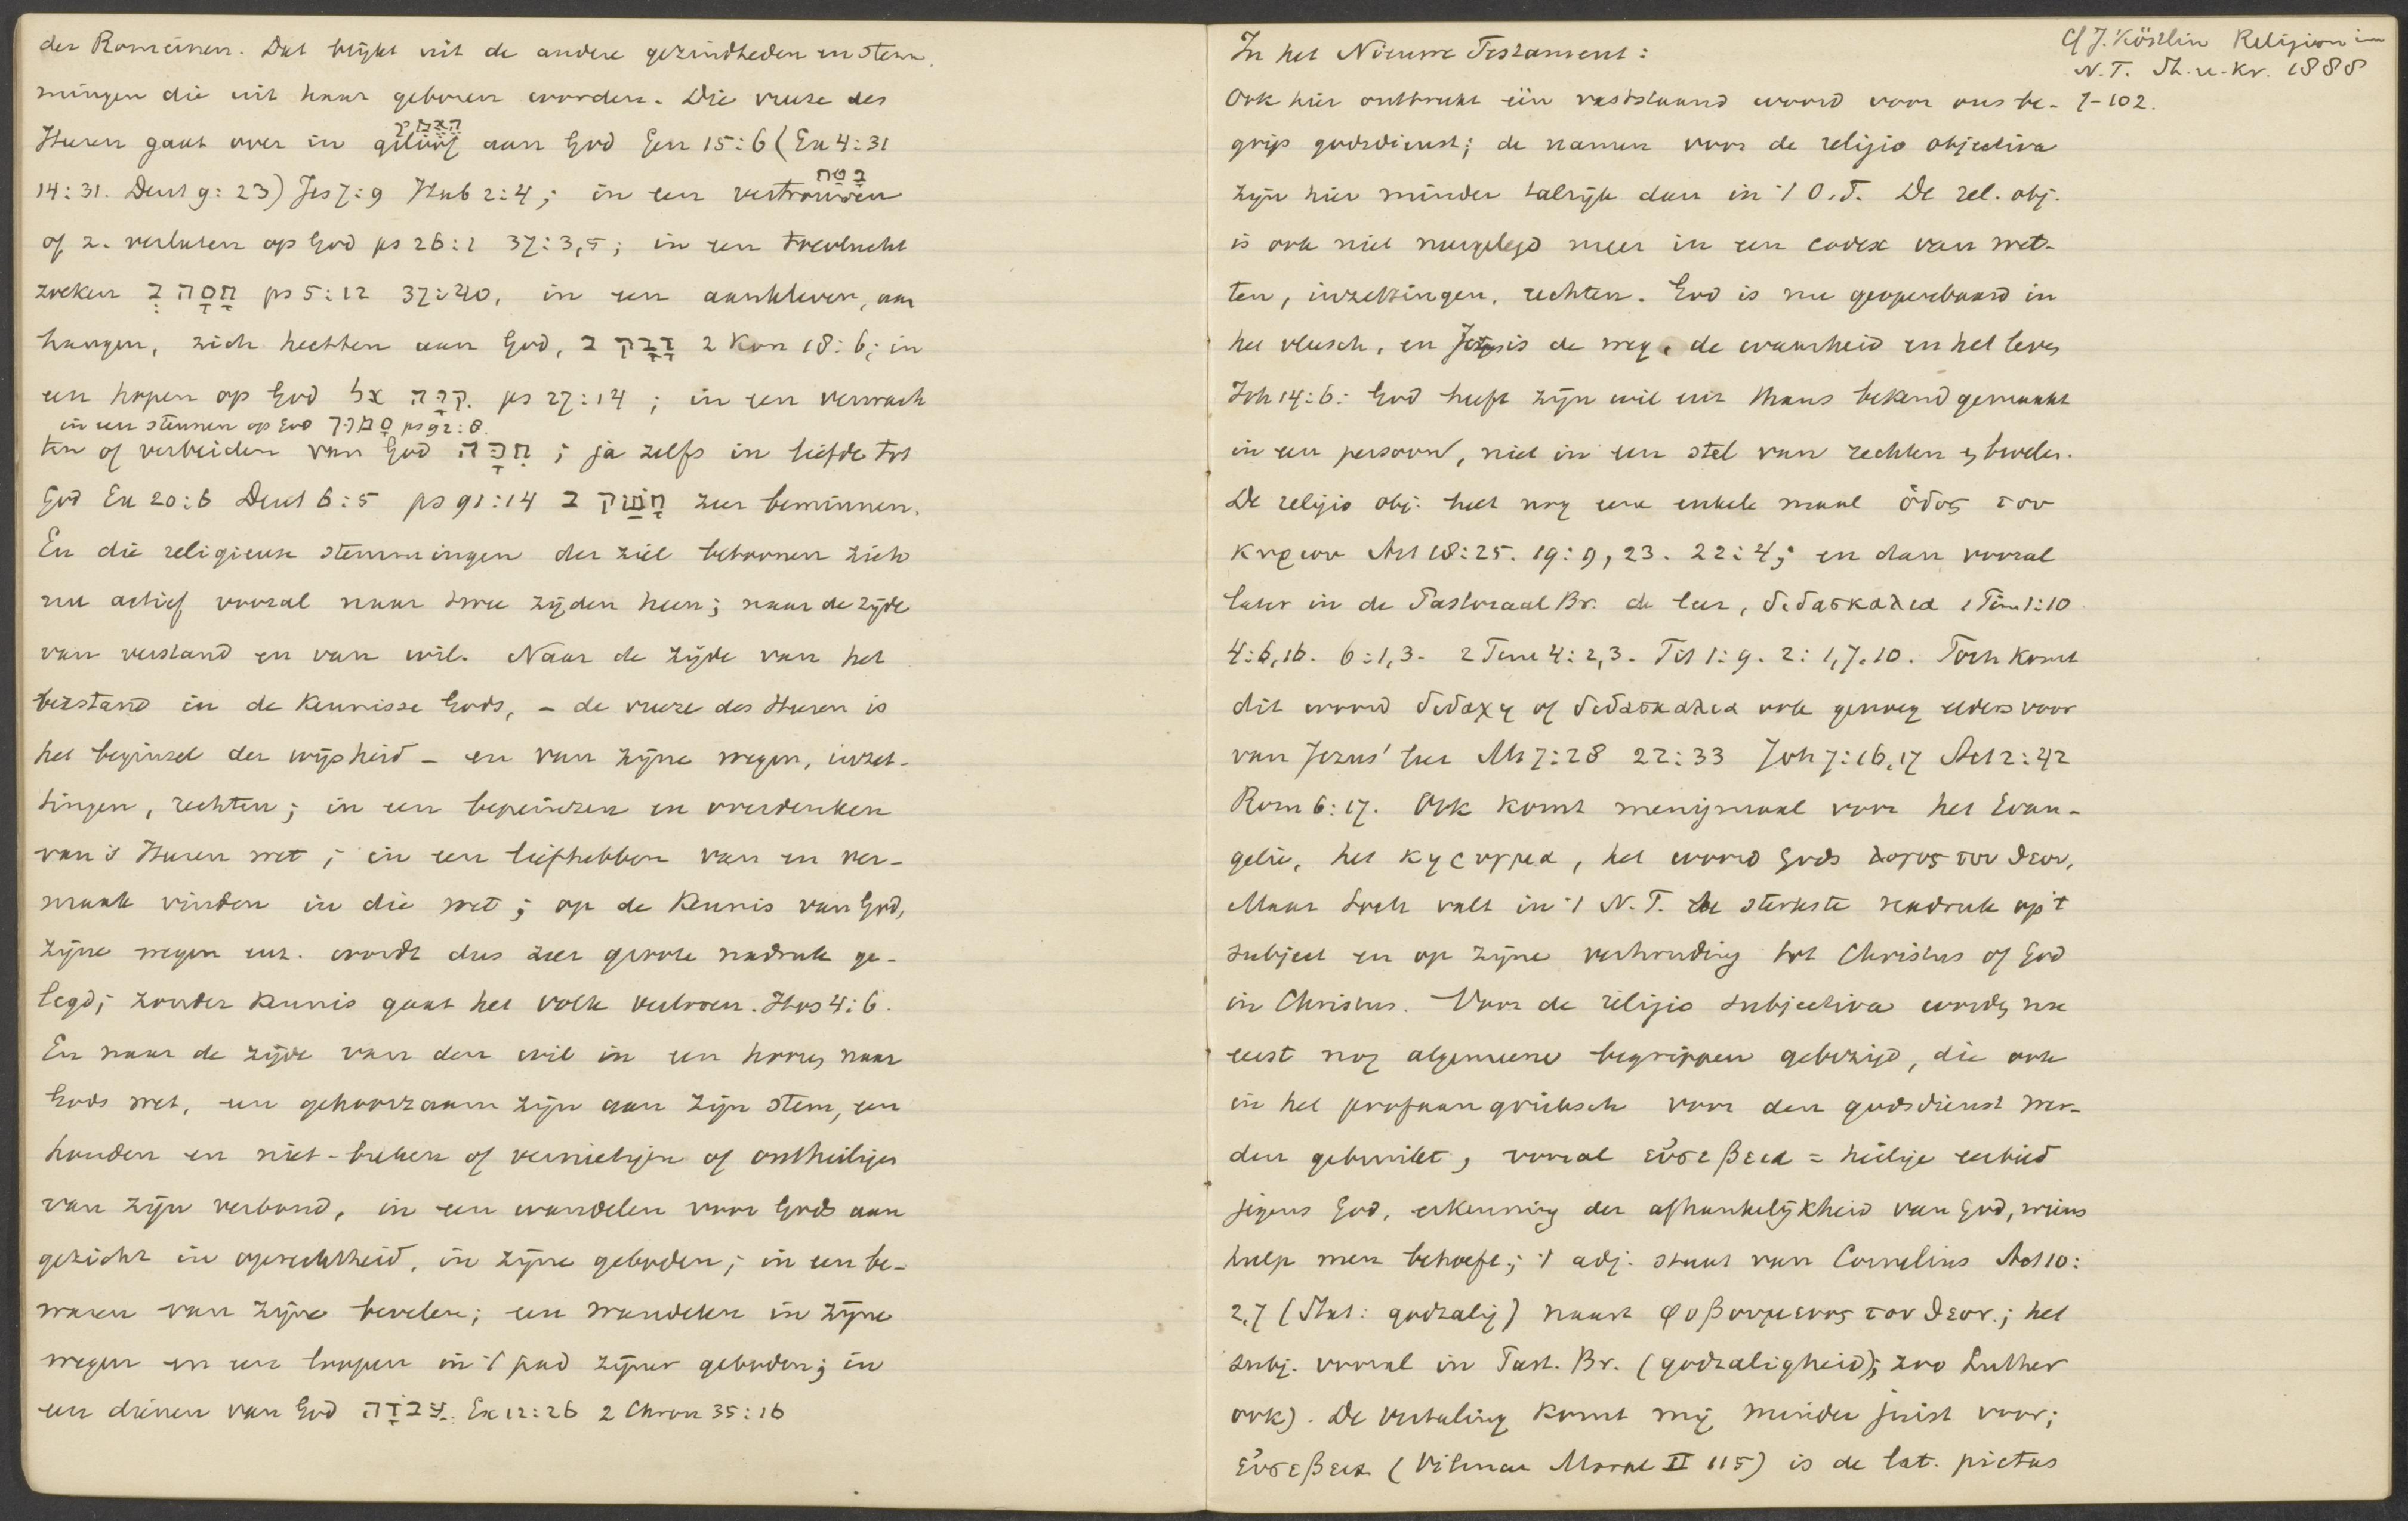 der Romeinen. Dat blijkt uit de andere gezindheden en stem-
mingen die uit haar geboren worden. Die vreze des
האמין
Heeren gaat over in geloof aan God Gen 15:6 (Ex 4:31
בטח
14:31. Deut 9:23) Jes 7:9 Hab 2:4; in een vertrouwen
of z. verlaten op God ps 26:1 37:3,5; in een toevlucht
zoeken חָסָה בְּ ps 5:12 37:40, in een aankleven, aan
hangen, zich hechten aan God, דָּבַק ב 2 Kon 18:6; in
een hopen op God קִוָּה אל ps 27:14; in een verwach
in een steunen op God סָמַךְ
ten of verbeiden van God חִכָּה; ja zelfs in liefde tot
God Ex 20:6 Deut 6:5 ps 91:14 חָשַׁק ב zeer beminnen.
En die religieuse stemmingen der ziel betoonen zich
nu actief vooral naar twee zijden heen; naar de zijde
van verstand en van wil. Naar de zijde van het
verstand in de kennisse Gods, - de vreze des Heeren is
het beginsel der wijsheid - en van zijne wegen, inzet-
tingen, rechten; in een bepeinzen en overdenken
van 's Heeren wet; in een liefhebben van en ver-
maak vinden in die wet; op de kennis van God,
zijne wegen enz. wordt dus zeer groote nadruk ge-
legd; zonder kennis gaat het volk verloren. Hos 4:6.
En naar de zijde van den wil in een hooren naar
Gods wet, een gehoorzaam zijn aan zijn stem, een
houden en niet-breken of vernietigen of ontheiligen
van zijn verbond, in een wandelen voor Gods aan
gezicht in oprechtheid, in zijne geboden; in een be-
waren van zijne bevelen; een wandelen in zijne
wegen en een loopen in 't pad zijner geboden; in
een dienen van God עֲבֹדָה Ex 12:26 2 Chron 35:16
Cf J. Köstlin Religion im
N.T. St. u. Kr. 1888
7-102.
In het Nieuwe Testament:
Ook hier ontbreekt één vaststaand woord voor ons be-
grip godsdienst; de namen voor de religio objectiva
zijn hier minder talrijk dan in 't O.T. De rel. obj.
is ook niet neergelegd meer in een codex van wet-
ten, inzettingen, rechten. God is nu geopenbaard in
het vleesch, en Jezus is de weg, de waarheid en het leven
Joh 14:6: God heeft zijn wil ons thans bekend gemaakt
in een persoon, niet in een stel van rechten en bevelen.
De religio obj. heet nog een enkele maal ὁδος του
κυριου Act 18:25. 19:9, 23. 22:4; en dan vooral
later in de Pastoraal Br. de leer, διδασκαλια 1 Tim 1:10
4:6,16. 6:1,3. 2 Tim 4:2,3. Tit 1:9. 2:1,7.10. Toch komt
dit woord διδαχη of διδασκαλια ook genoeg elders voor
van Jezus' leer Mt 7:28 22:33 Joh 7:16,17 Act 2:42
Rom 6:17. Ook komt menigmaal voor het Evan-
gelie, het κηρυγμα, het woord Gods λογος του θεου,
Maar toch valt in 't N.T. de sterkste nadruk op 't
subject en op zijne verhouding tot Christus of God
in Christus. Voor de religio subjectiva worden nu
eerst nog algemeene begrippen gebezigd, die ook
in het profaangrieksch voor den godsdienst wer-
den gebruikt, vooral εὐσεβεια = heilige eerbied
jegens God, erkenning der afhankelijkheid van God, wiens
hulp men behoeft; 't adj. staat van Cornelius Act 10:
2,7 (Stat: godzalig) naast φοβουμενος τον θεον; het
subj. vooral in Past. Br. (godzaligheid); zoo Luther
ook). De vertaling komt mij minder juist voor;
εὐσεβεια (Vilmar Moral II 115) is de lat. pietas